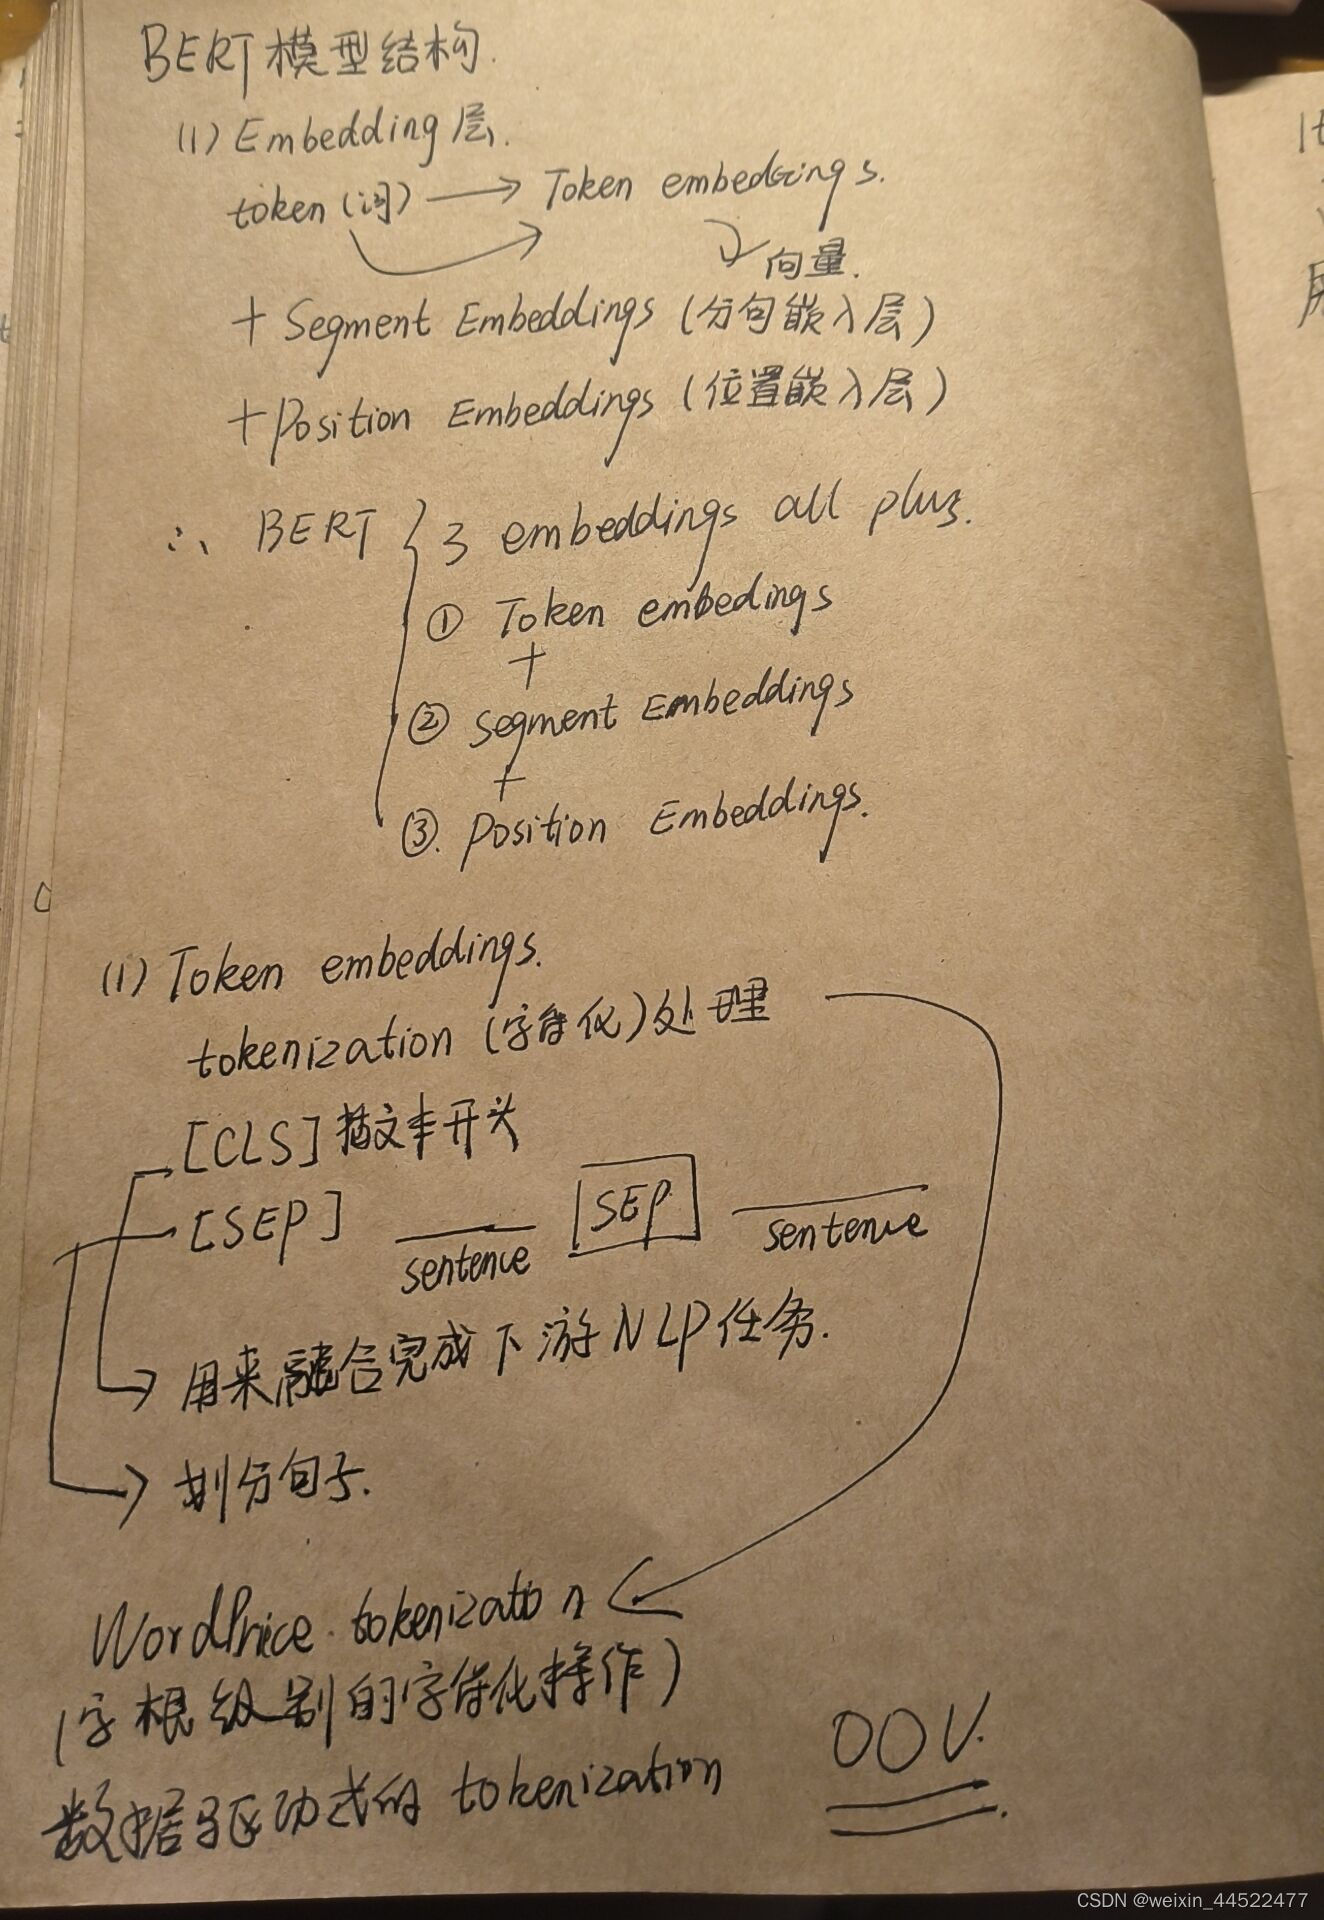 BERT模型结构.
(1) Embedding层.
token (词) → Token embeddings.
向量.
+ Segment Embeddings (分句嵌入层)
+ Position Embeddings (位置嵌入层)
∴ BERT { 3 embeddings all plus.
① Token embedings
+
② Segment Embeddings
+
③. Position Embeddings.
(1) Token embeddings.
tokenization (字符化) 处理
[CLS] 插文本开头
[SEP] sentence [SEP] sentence
→ 用来融合完成下游NLP任务.
→ 划分句子.
WordPiece. tokenization
(字根级别的字符化操作)
数据驱动式的 tokenization
OOV.
CSDN @weixin_44522477